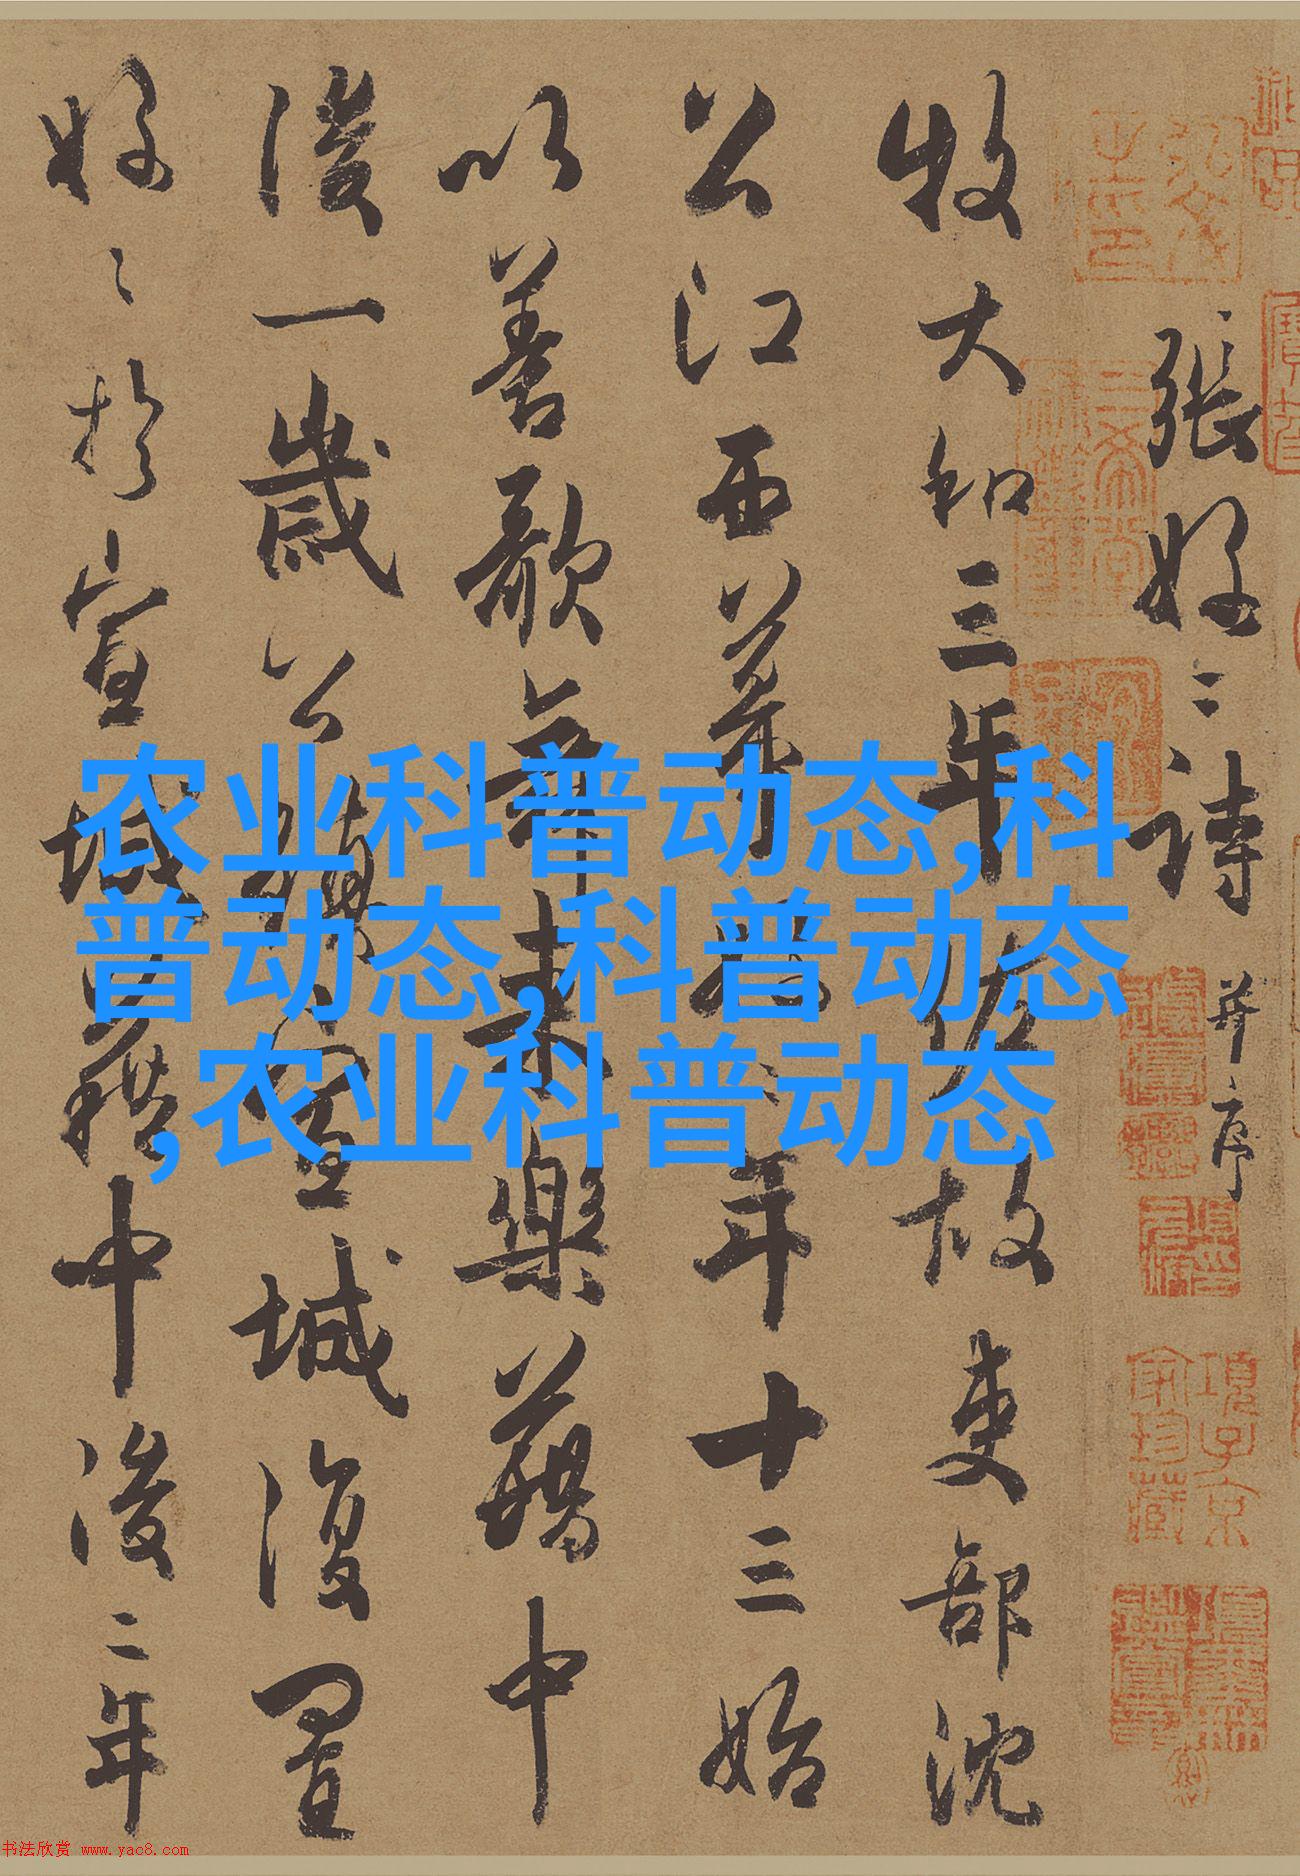 张好好诗
并序
牧大和三年佐故吏部沈
公江西幕好好年十三始
以善歌舞来乐籍中
后一岁公镇宣城复置
好好于宣城籍中后二年
农业科普动态,科
普动态,科普动态
,农业科普动态
书法欣赏 www.yac8.com